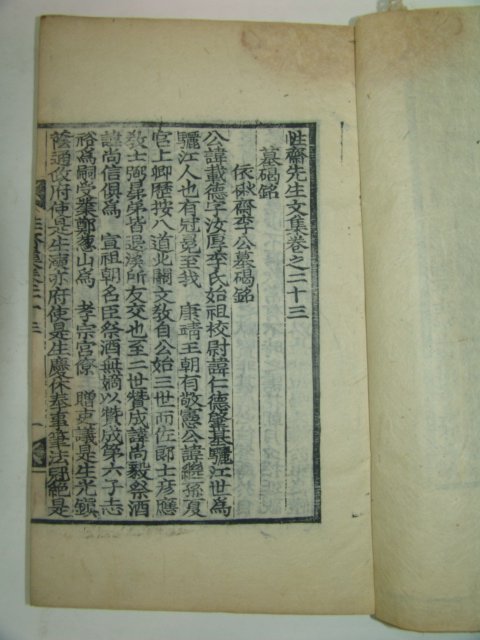 性齋先生文集卷之二十三
墓碣銘
依楸齋李公墓碣銘
公諱載德字汝厚李氏始祖校尉諱仁德肇基驪江世爲
驪江人也有冠冕至我 康靖王朝有敬憲公諱繼孫夏
官上卿歷按八道北關文敎自公始三世而佐郞士彦應
敎士弼昴弟皆退溪所友交也至二世贊成諱尙毅祭酒
諱尙信俱爲 宣祖朝名臣祭酒無嫡以贊成第六子志
裕爲嗣堂葉鄭葱山爲 孝宗宮僚 贈吏議是生光鎭
蔭通政府使是生 亦府使是生慶休奉事筆法冠絶是